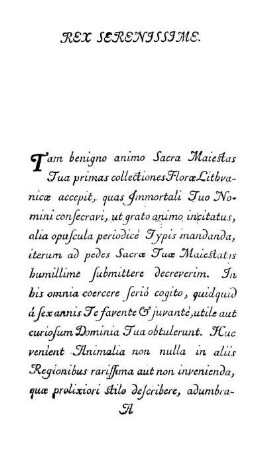 REX SERENISSIME.
Tam benigno animo Sacra Maiestas
Tua primas collectiones Floræ Lithva-
nicæ accepit, quas Immortali Tuo No-
mini consecravi, ut grato animo incitatus,
alia opuscula periodicè Typis mandanda,
iterum ad pedes Sacræ Tuæ Maiestatis
humillime submittere decreverim. In
his omnia coercere seriò cogito, quidquid
á sex annis Te favente & juvantè, utile aut
curiosum Dominia Tua obtulerunt. Huc
venient Animalia non nulla in aliis
Regionibus rarissima aut non invenienda,
quæ prolixiori stilo describere, adumbra-
A